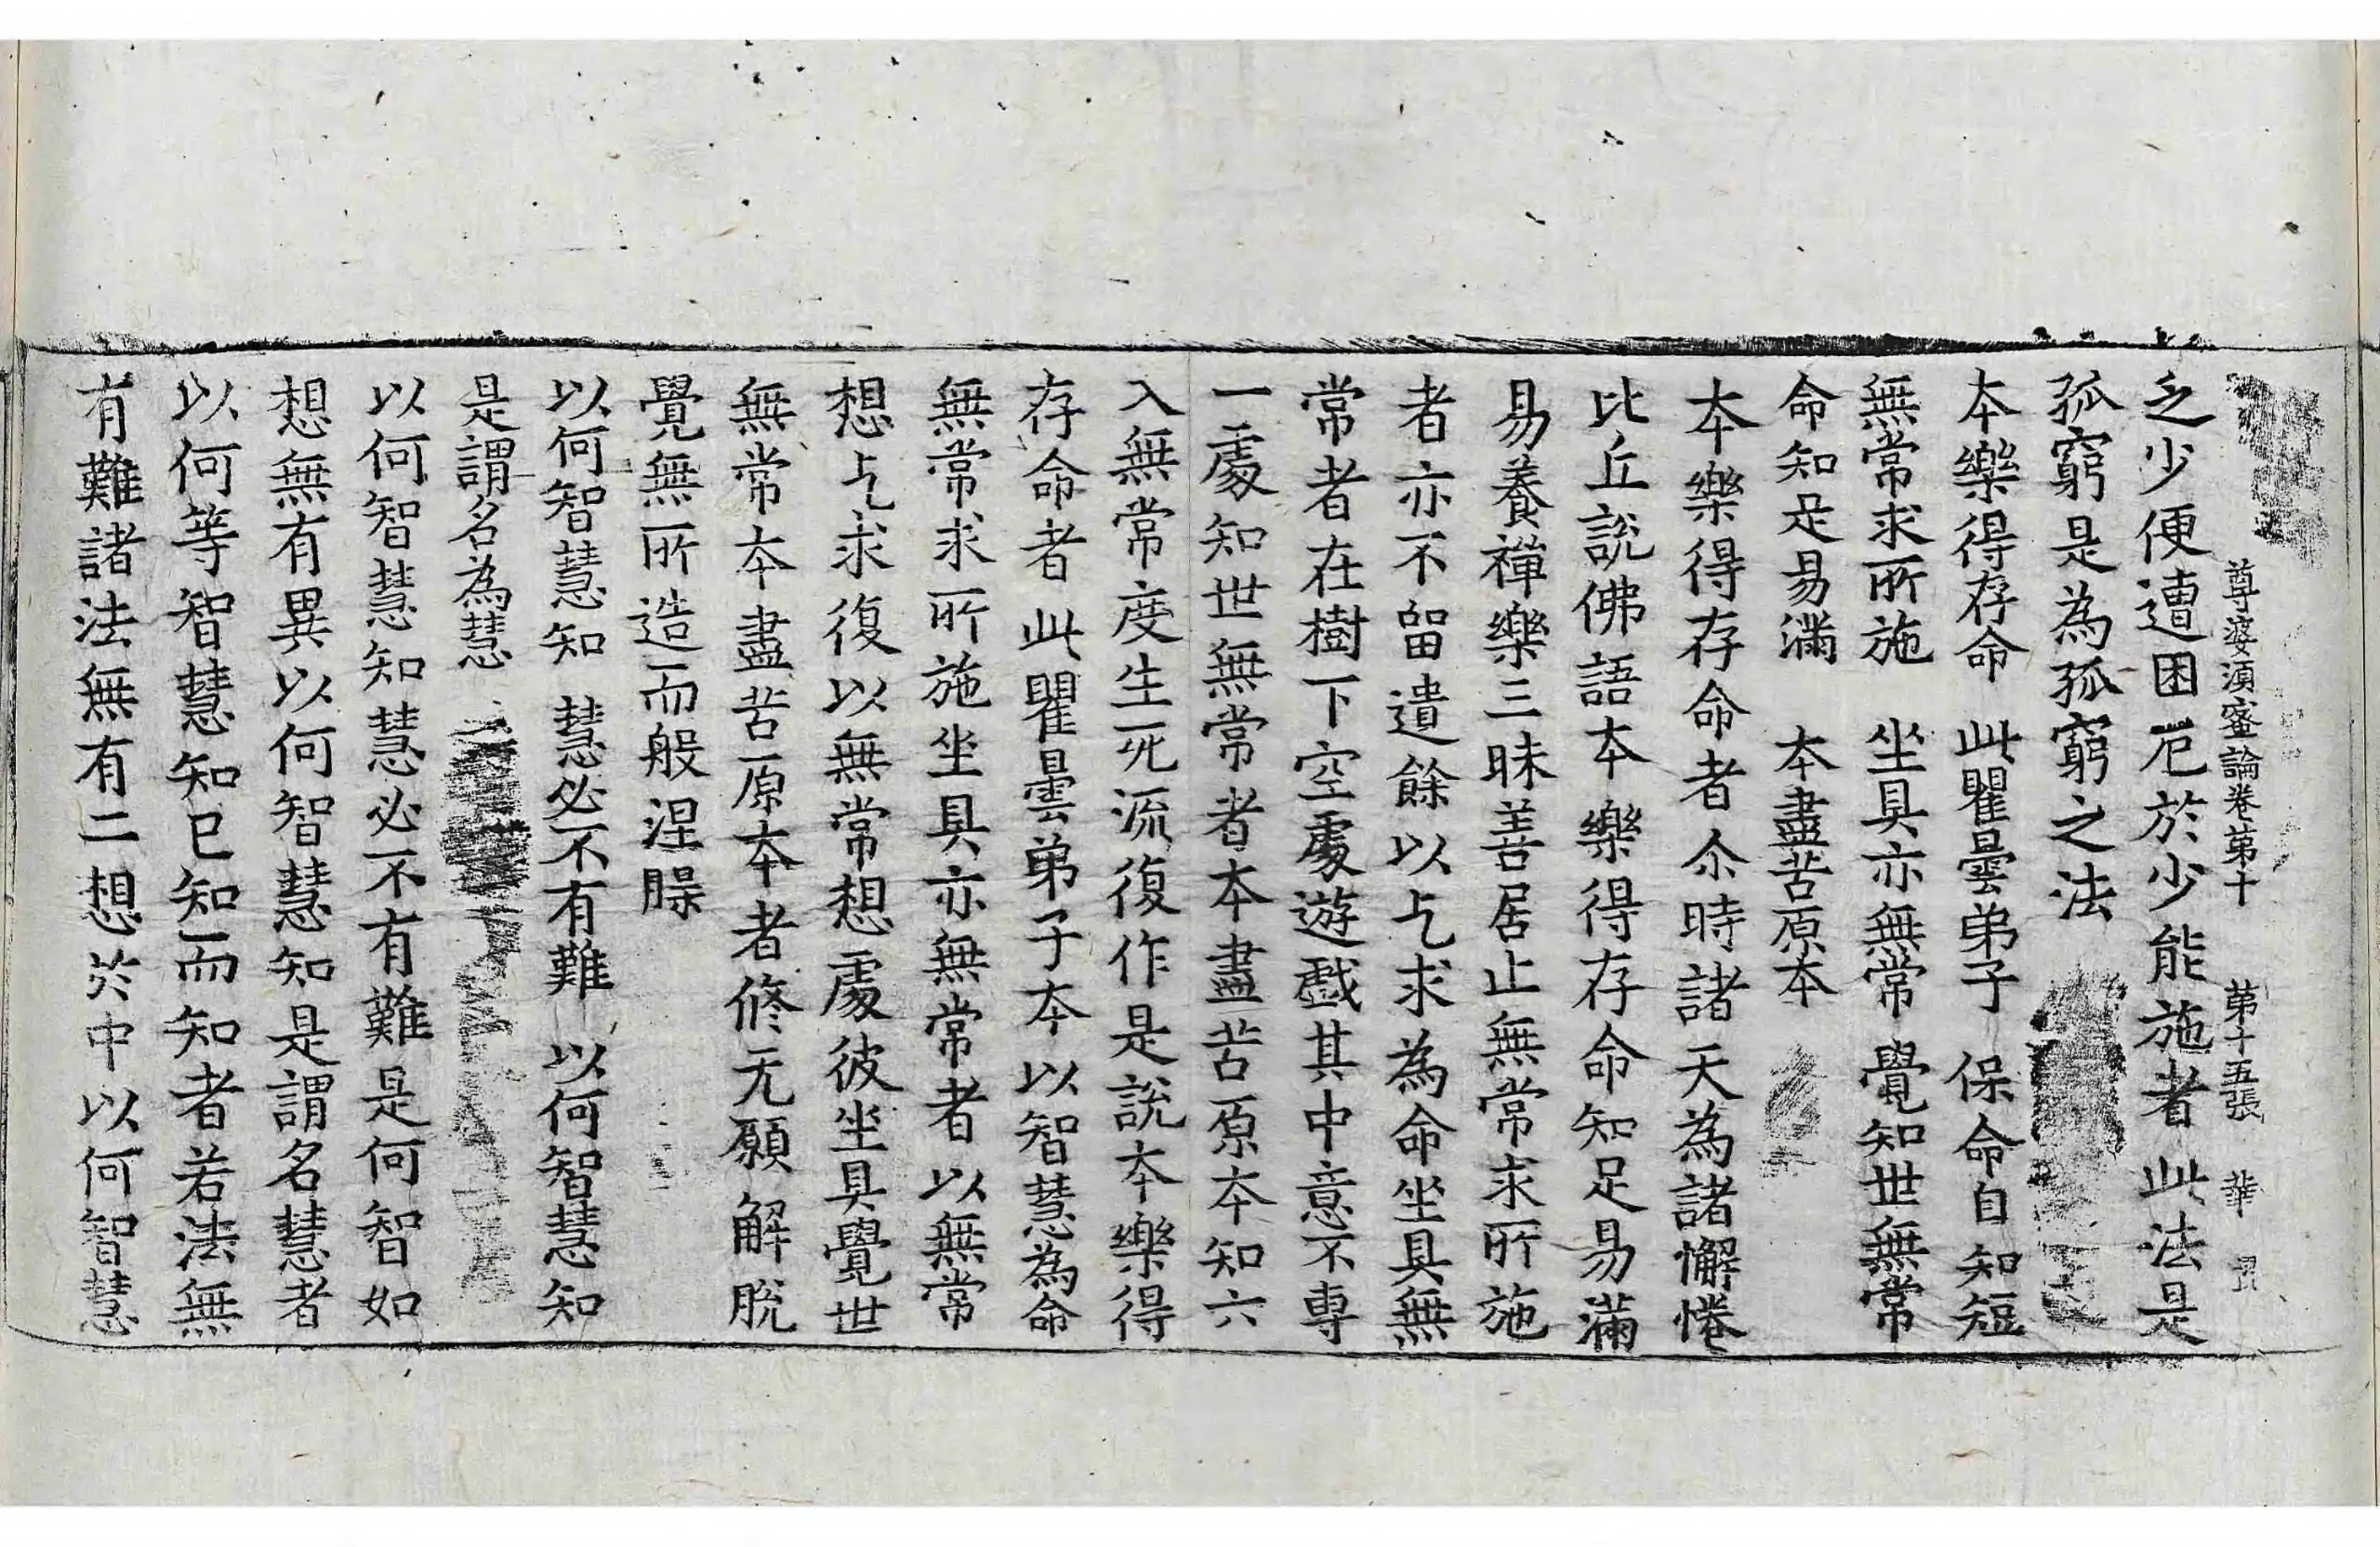 尊婆湏蜜論卷苐十 苐十五張 華
乏少便遭困厄於少能施者此法是
孤窮是為孤窮之法
本樂得存命 此瞿曇弟子 保命自知短
無常求所施 坐具亦無常 覺知世無常
命知足易滿 本盡苦原本
本樂得存命者尒時諸天為諸懈惓
比丘說佛語本樂得存命知足易滿
易養禪樂三昧善居止無常求所施
者亦不留遺餘以乞求為命坐具無
常者在樹下空處遊戲其中意不專
一處知世無常者本盡苦原本知六
入無常度生死流復作是說本樂得
存命者此瞿曇弟子本以智慧為命
無常求所施坐具亦無常者以無常
想乞求復以無常想處彼坐具覺世
無常本盡苦原本者脩无願解脫
覺無所造而般涅槃
以何智慧知 慧必不有難 以何智慧知
是謂名為慧
以何智慧知慧必不有難是何智如
想無有異以何智慧知是謂名慧者
以何等智慧知已知而知者若法無
有難諸法無有二想於中以何智慧